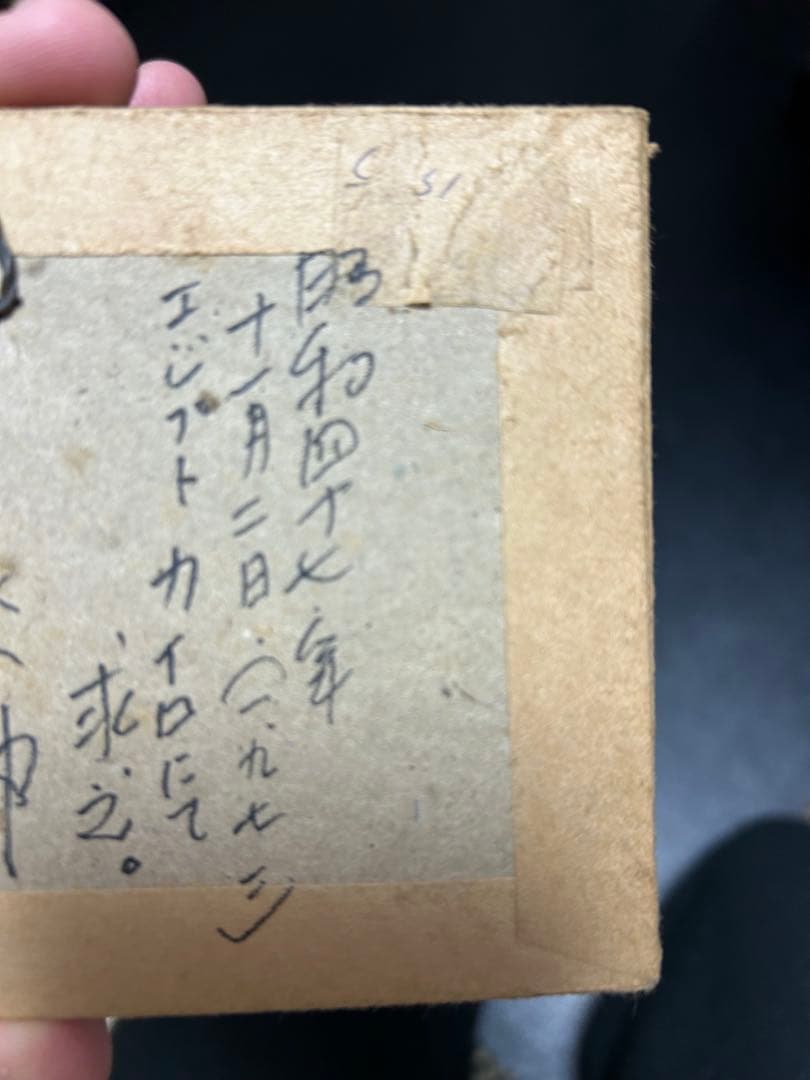 昭和四十七年
十一月二日(一九七二)
エジプト カイロにて
求之。